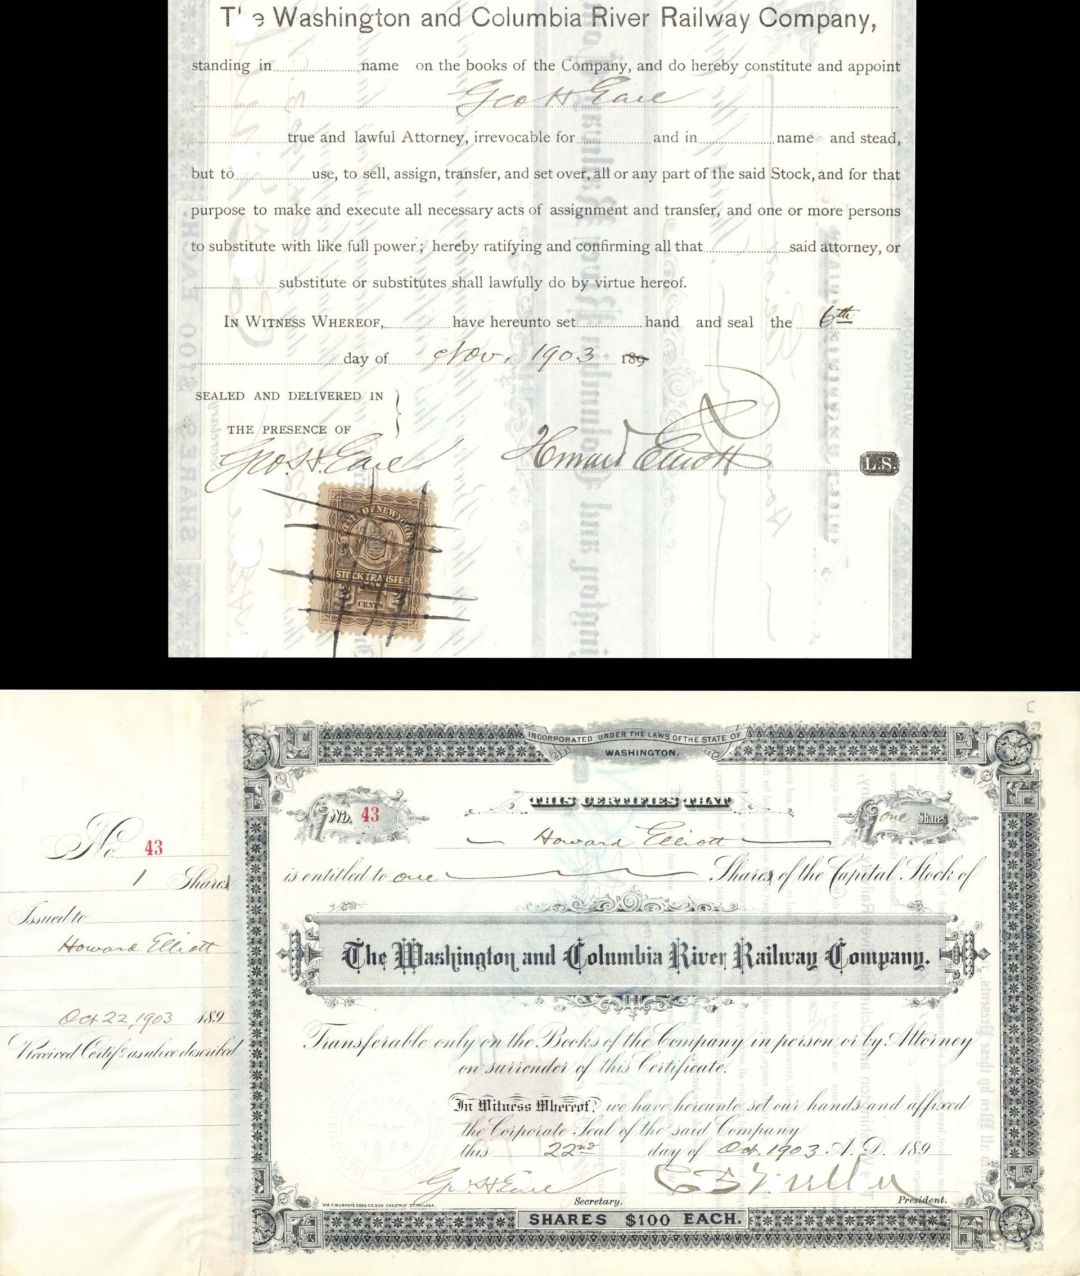 The Washington and Columbia River Railway Company,
standing in name on the books of the Company, and do hereby constitute and appoint
Geo H Earl
true and lawful Attorney, irrevocable for and in name and stead,
but to use, to sell, assign, transfer, and set over, all or any part of the said Stock, and for that
purpose to make and execute all necessary acts of assignment and transfer, and one or more persons
to substitute with like full power; hereby ratifying and confirming all that said attorney, or
substitute or substitutes shall lawfully do by virtue hereof.
IN WITNESS WHEREOF, have hereunto set hand and seal the 6th
day of Nov. 1903 189
SEALED AND DELIVERED IN
THE PRESENCE OF
Geo. H. Earl
Howard Elliott
L.S.
STATE OF NEW YORK
STOCK TRANSFER
2 CENTS 2
INCORPORATED UNDER THE LAWS OF THE STATE OF
WASHINGTON.
THIS CERTIFIES THAT
No. 43
one Shares
Howard Elliott
is entitled to one Shares of the Capital Stock of
The Washington and Columbia River Railway Company.
Transferable only on the Books of the Company in person or by Attorney
on surrender of this Certificate.
In Witness Whereof, we have hereunto set our hands and affixed
the Corporate Seal of the said Company
this 22nd day of Oct. 1903 A.D. 189
Geo. H. Earl
Secretary.
President.
SHARES $100 EACH.
No. 43
1 Shares
Issued to
Howard Elliott
Oct 22, 1903 189
Received Certif. as above described